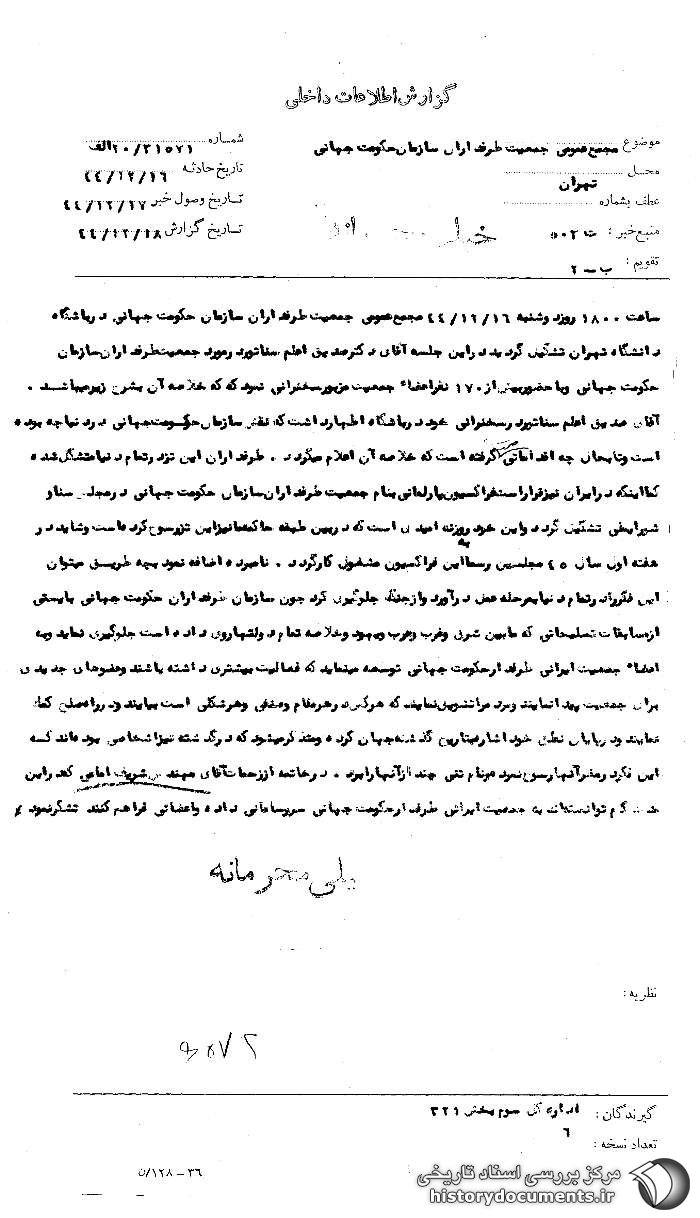 گزارش اطلاعات داخلی
موضوع مجمع عمومی جمعیت طرفداران سازمان حکومت جهانی
شماره ۲۰/۳۱۵۷۱الف
محل تهران
تاریخ حادثه ۴۴/۱۲/۱۶
عطف بشماره
تاریخ وصول خبر ۴۴/۱۲/۱۷
منبع خبر :
تاریخ گزارش ۴۴/۱۲/۱۸
تقویم : ب - ۲
ساعت ۱۸۰۰ روز دوشنبه ۴۴/۱۲/۱۶ مجمع عمومی جمعیت طرفداران سازمان حکومت جهانی در باشگاه
دانشگاه تهران تشکیل گردید در این جلسه آقای دکتر صدیق اعلم سناتور در مورد جمعیت طرفداران سازمان
حکومت جهانی وبا حضور بیش از ۱۷۰ نفر اعضاء جمعیت مزبور سخنرانی نمود که که خلاصه آن بشرح زیر میباشد .
آقای صدیق اعلم سناتور در سخنرانی خود در باشگاه اظهار داشت که نقش سازمان حکومت جهانی در دنیا چه بوده
است و تا بحال چه اقداماتی صورت گرفته است که خلاصه آن اعلام میگردد . طرفداران این تز در تمام دنیا متشکل شده
کما اینکه در ایران نیز قرار است فراکسیون پارلمانی بنام جمعیت طرفداران سازمان حکومت جهانی در مجلس سنا و
شورایملی تشکیل گردد و این خود روزنه امیدی است که در بین طبقه حاکمه نیز این تز رسوخ کرده است و شاید در
هفته اول سال ۴۵ مجلسین رسما به این فراکسیون مشغول کار گردد . نامبرده اضافه نمود بچه طریق میتوان
این فکر را در تمام دنیا بمرحله عمل در آورد و از جنگ جلوگیری کرد چون سازمان طرفداران حکومت جهانی بایستی
از مسابقات تسلیحاتی که مابین شرق و غرب و عرب و یهود و خلاصه تمام دولتها روی داده است جلوگیری نماید و به
اعضاء جمعیت ایرانی طرفدار حکومت جهانی توصیه مینماید که فعالیت بیشتری داشته باشند و عضوهای جدیدی
برای جمعیت پیدا نمایند و مردم را تشویق نمایند که هر کس در هر مقام و صنفی و هر شکلی است بیایند و در راه صلح کمک
نمایند و در پایان نطق خود اشاره بتاریخ گذشته جهان کرده و متذکر میشود که در گذشته نیز اشخاصی بوده اند که
این فکر در مغز آنها رسوخ نمود و نام تنی چند از آنها را برد . در خاتمه از زحمات آقای مهندس شریف امامی که در این
مدت کم توانسته اند به جمعیت ایرانی طرفدار حکومت جهانی سر و سامانی داده و اعضائی فراهم کنند تشکر نمود
خیلی محرمانه
نظریه :
گیرندگان : اداره کل سوم بخش ۳۲۱
تعداد نسخه : ۶
۳۶ - ۱۲۸/ن
مرکز بررسی اسناد تاریخی
historydocuments.ir